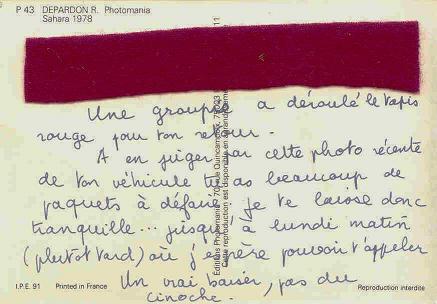 P 43 DEPARDON R. Photomania
Sahara 1978
11
Une groupie a déroulé le tapis
rouge pour ton retour.
A en juger par cette photo récente
de ton véhicule tu as beaucoup de
paquets à défaire. Je te laisse donc
tranquille... jusqu'à lundi matin
(plutôt tard) où j'espère pouvoir t'appeler
Un vrai baiser, pas du
cinoche.
Editions Photomania - 70 rue Quincampoix, 75003
Cette reproduction est disponible en
I.P.E. 91 Printed in France Reproduction interdite